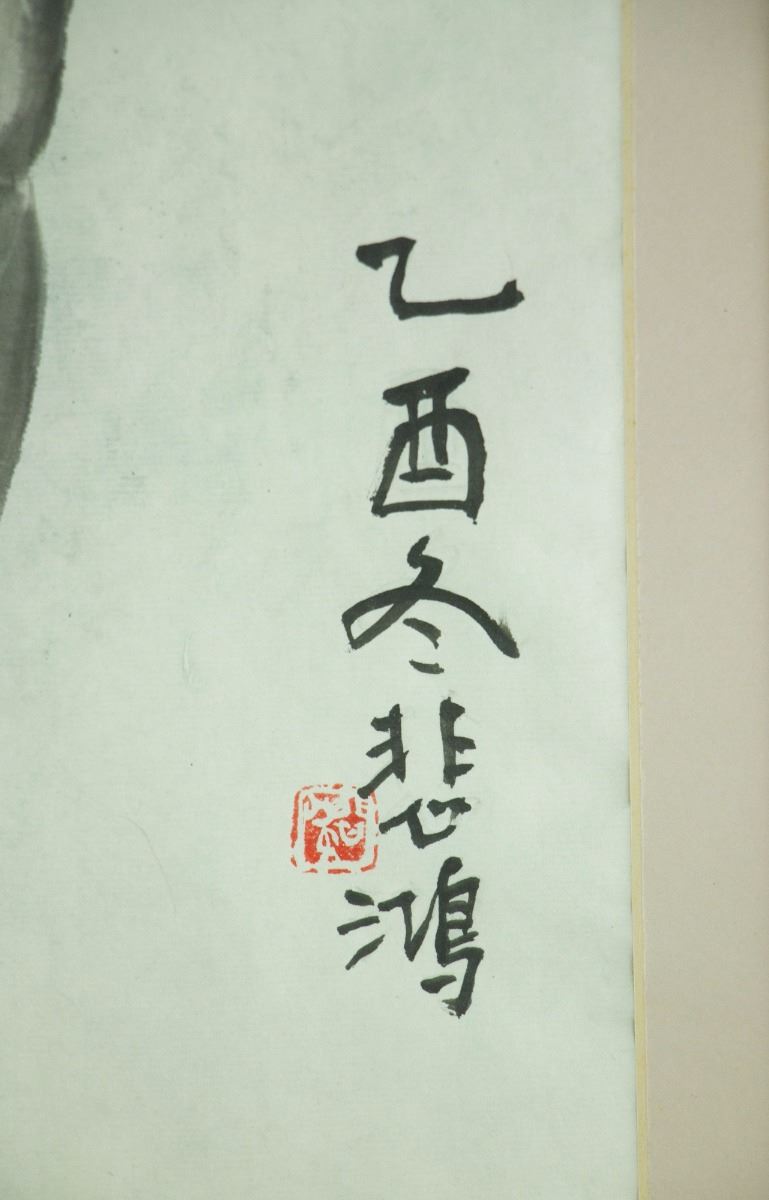 乙酉冬悲鸿